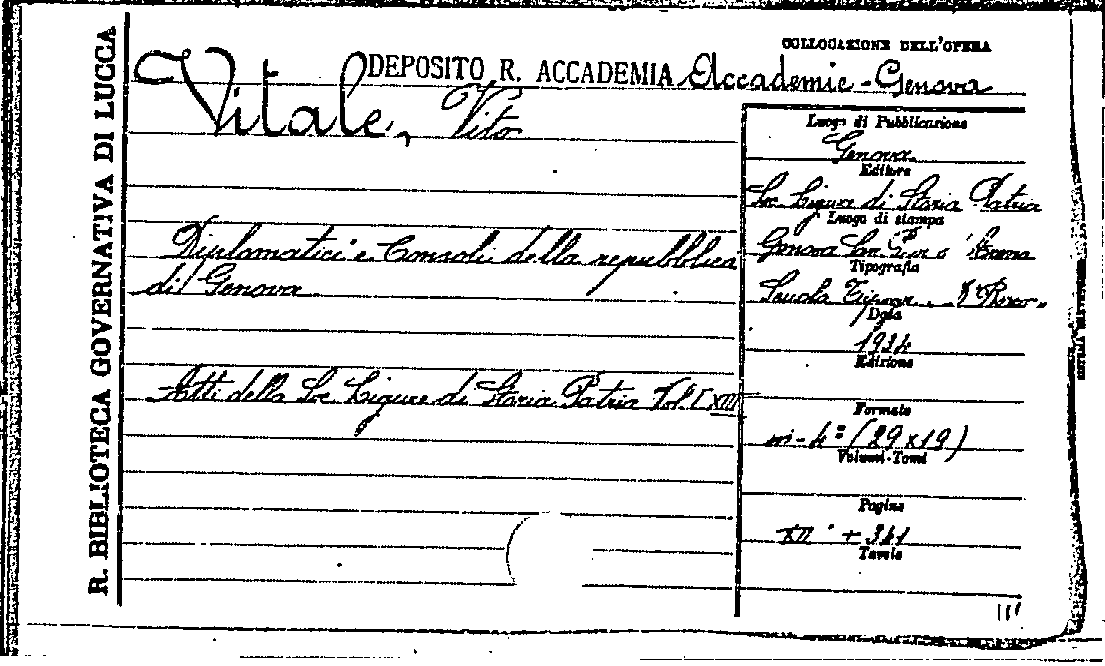 R. BIBLIOTECA GOVERNATIVA DI LUCCA
COLLOCAZIONE DELL'OPERA
DEPOSITO R. ACCADEMIA Accademie - Genova
Vitale, Vito
Diplomatici e Consoli della repubblica
di Genova
Atti della Soc Ligure di Storia Patria Vol. LXIII
Luogo di Pubblicazione
Genova
Editore
Soc Ligure di Storia Patria
Luogo di stampa
Genova
Tipografia
Scuola
Data
1934
Edizione
Formato
in-4º (29 x 19)
Volumi-Tomi
Pagine
XII + 341
Tavole